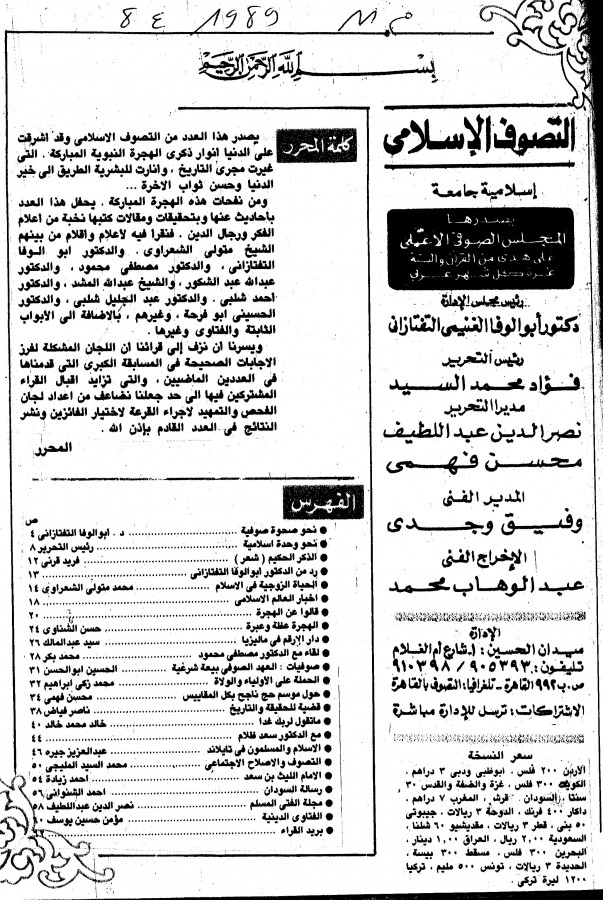 8 ٤ 1989 م.م
بسم الله الرحمن الرحيم
التصوف الإسلامى
إسلامية جامعة
يصدرها
المجلس الصوفى الأعلى
على هدى من القرآن والسنة
غرة كل شهر عربى
رئيس مجلس الإدارة
دكتور أبو الوفا الغنيمى التفتازانى
رئيس التحرير
فؤاد محمد السيد
مديرا التحرير
نصر الدين عبد اللطيف
محسن فهمى
المدير الفنى
وفيق وجدى
الإخراج الفنى
عبد الوهاب محمد
الإدارة
ميدان الحسين : ١ شارع أم الغلام
تليفون : ٩٠٥٣٩٣ / ٩١٠٣٩٨
ص.ب ٩٩٢ القاهرة - تلغرافيا : التصوف بالقاهرة
الاشتراكات : ترسل للإدارة مباشرة
سعر النسخة
الأردن ٢٠٠ فلس ، ابوظبى ودبى ٣ دراهم ،
الكويت ٣٠٠ فلس ، غزة والضفة والقدس ٣٠
سنتا ، السودان قرش ، المغرب ٧ دراهم ،
داكار ٤٠٠ فرنك ، الدوحة ٣ ريالات ، جيبوتى
٥٠ بنى ، قطر ٣ ريالات ، مقديشيو ٦٠ شلنا ،
السعودية ٢,٠٠ ريال ، العراق ١,٠٠ دينار ،
البحرين ٣٠٠ فلس ، مسقط ٣٠٠ بيسة ،
الحديدة ٣ ريالات ، تونس ٥٠٠ مليم ، تركيا
١٢٠٠ ليرة تركى .
كلمة المحرر
يصدر هذا العدد من التصوف الاسلامى وقد اشرقت
على الدنيا انوار ذكرى الهجرة النبوية المباركة . التى
غيرت مجرى التاريخ ، وانارت للبشرية الطريق الى خير
الدنيا وحسن ثواب الاخرة ...
ومن نفحات هذه الهجرة المباركة . يحفل هذا العدد
بأحاديث عنها وبتحقيقات ومقالات كتبها نخبة من اعلام
الفكر ورجال الدين . فنقرا فيه لأعلام واقلام من بينهم
الشيخ متولى الشعراوى . والدكتور ابو الوفا
التفتازانى ، والدكتور مصطفى محمود ، والدكتور
عبدالله عبد الشكور ، والشيخ عبدالله المشد ، والدكتور
احمد شلبى . والدكتور عبد الجليل شلبى ، والدكتور
الحسينى ابو فرحة ، وغيرهم ، بالاضافة الى الأبواب
الثابتة والفتاوى وغيرها .
ويسرنا أن نزف إلى قرائنا ان اللجان المشكلة لفرز
الاجابات الصحيحة فى المسابقة الكبرى التى قدمناها
فى العددين الماضيين ، والتى تزايد اقبال القراء
المشتركين فيها الى حد جعلنا نضاعف من اعداد لجان
الفحص والتمهيد لاجراء القرعة لاختيار الفائزين ونشر
النتائج فى العدد القادم بإذن الله .
المحرر
الفهرس
ص
● نحو صحوة صوفية د . ابوالوفا التفتازانى ٤
● نحو وحدة اسلامية رئيس التحرير ٨
● الذكر الحكيم ( شعر ) فريد قرنى ١٢
● رد من الدكتور ابوالوفا التفتازانى ١٣
● الحياة الزوجية فى الاسلام محمد متولى الشعراوى ١٤
● اخبار العالم الاسلامى ١٨
● قالوا عن الهجرة ٢٠
● الهجرة عظة وعبرة حسن الشناوى ٢٤
● دار الارقم فى ماليزيا سيد عبدالمالك ٢٦
● لقاء مع الدكتور مصطفى محمود محمد بكر ٢٨
● صوفيات : العهد الصوفى بيعة شرعية الحسين ابوالحسن ٣١
● الحملة على الأولياء والولاة محمد زكى ابراهيم ٣٢
● حول موسم حج ناجح بكل المقاييس محسن فهمى ٣٤
● قضية للحقيقة والتاريخ ناصر فياض ٣٨
● ماتقول لربك غدا خالد محمد خالد ٤٠
● مع الدكتور سعد ظلام ٤٤
● الاسلام والمسلمون فى تايلاند عبدالعزيز جيره ٤٦
● التصوف والاصلاح الاجتماعى محمد السيد المليجى ٥٠
● الامام الليث بن سعد احمد زيادة ٥٤
● رسالة السودان احمد الشنوانى ٥٦
● مجلة الفتى المسلم نصر الدين عبداللطيف ٥٨
● الفتاوى الدينية مؤمن حسين يوسف ٦٠
● بريد القراء